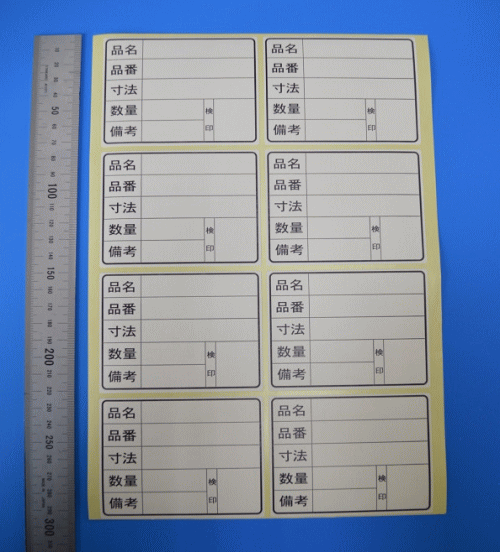 品名
品番
寸法
数量 検
備考 印
品名
品番
寸法
数量 検
備考 印
品名
品番
寸法
数量 検
備考 印
品名
品番
寸法
数量 検
備考 印
品名
品番
寸法
数量 検
備考 印
品名
品番
寸法
数量 検
備考 印
品名
品番
寸法
数量 検
備考 印
品名
品番
寸法
数量 検
備考 印
50
100
150
200
250
300